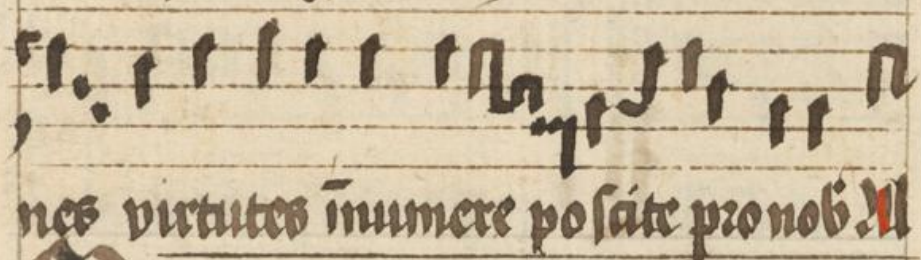 nes virtutes īnumere poscite pro nob All